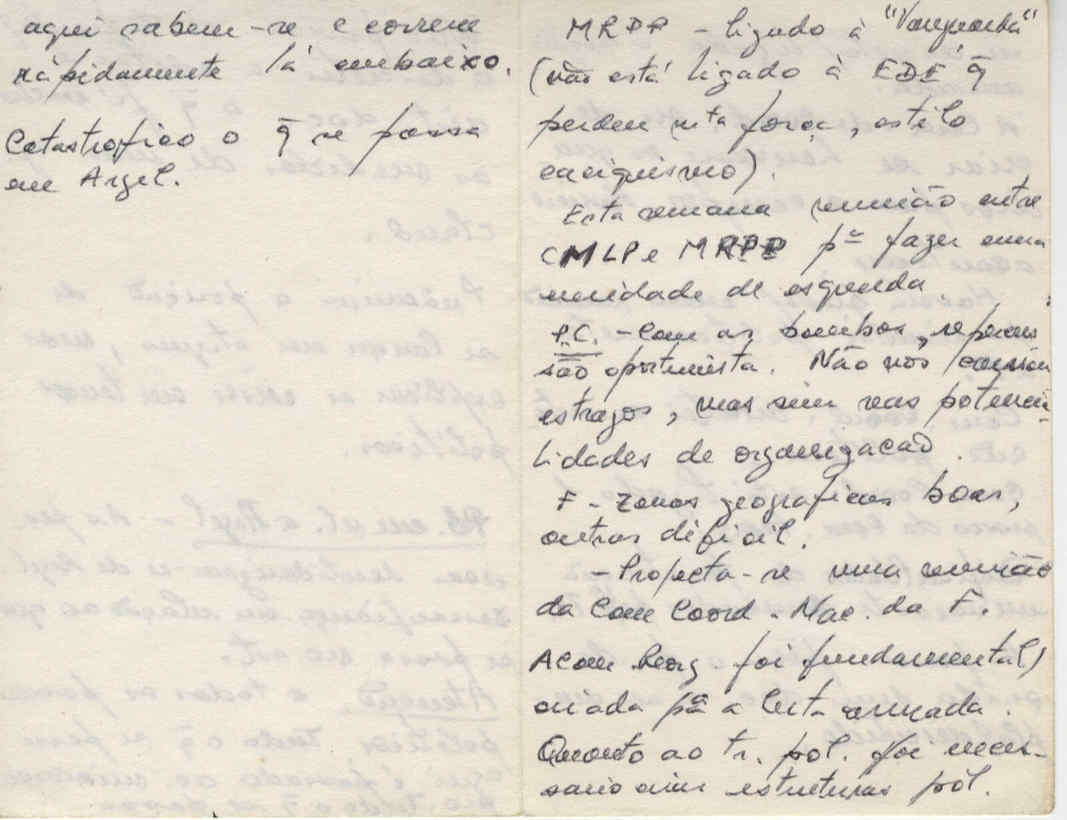 aqui sabem-se e correm
rápidamente lá embaixo.
Catastrofico o q̃ se passa
em Argel.
MRPP - ligado à "Vanguarda"
(não está ligado à EDE q̃
perdeu mta força, estilo
caciquismo).
Esta semana reunião entre
CMLP e MRPP pa fazer uma
unidade de esquerda.
P.C. - Com as bombas,
são oportunista. Não nos causam
estragos, mas sim nas potencia-
lidades de organização.
F - Zonas geograficas boas,
outras dificil.
- Projecta-se uma reunião
da Com Coord. Nac. da F.
A com Reorg foi fundamental/
criada pa a luta armada.
Quanto ao tr. pol. foi neces-
sario criar estruturas pol.